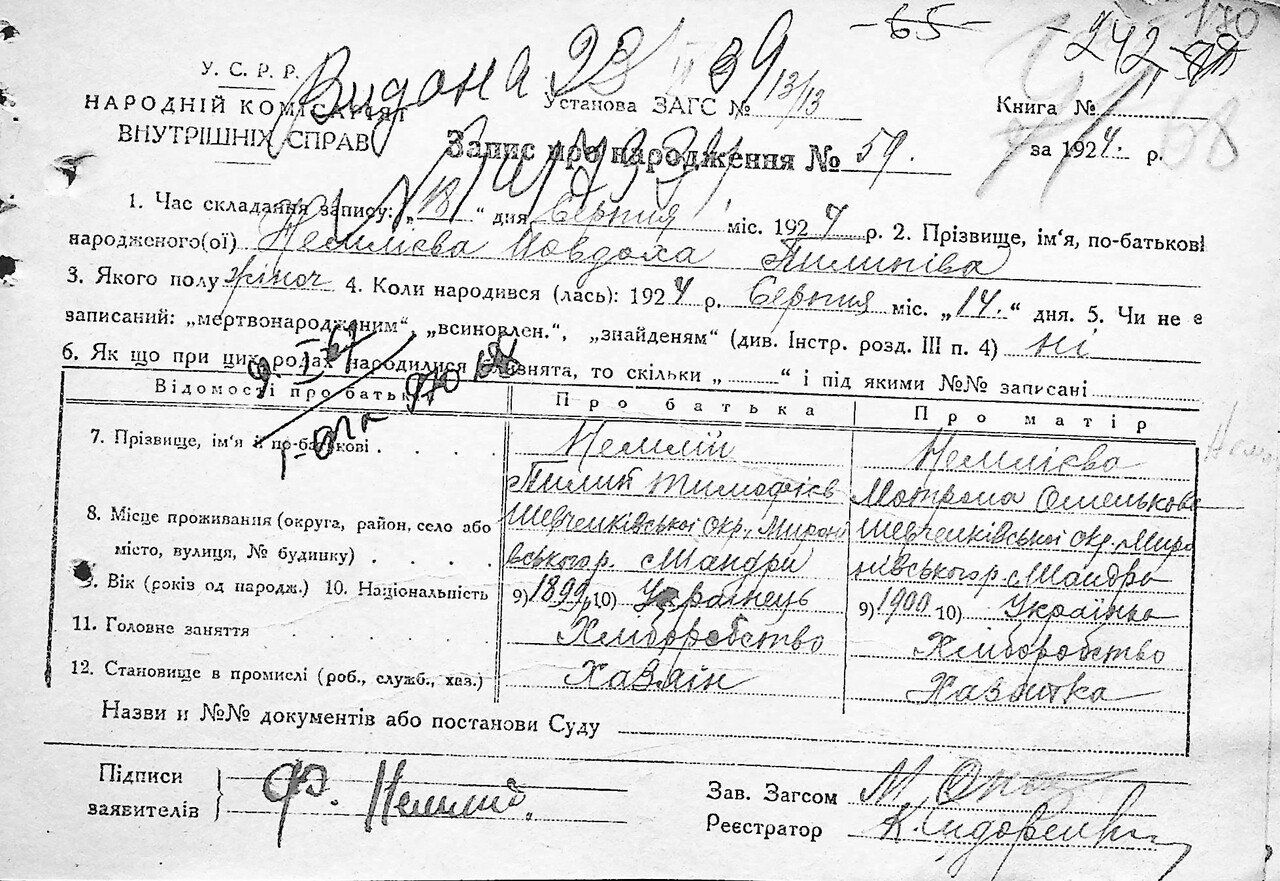 -65-
-242-
170
Видана 28/ІV 39
13/13
У. С. Р. Р.
НАРОДНІЙ КОМІСАРІЯТ
ВНУТРІШНІХ СПРАВ
Установа ЗАГС №
Книга №
68
Запис про народження № 59.
за 1924. р.
1. Час складання запису: „18“ дня Серпня міс. 1924 р. 2. Прізвище, ім‘я, по-батькові
народженого(ої) Немлієва Повдоха Пилипіва
3. Якого полу жіноч 4. Коли народився (лась): 1924 р. Серпня міс. „14.“ дня. 5. Чи не є
записаний: „мертвонародженим“, „всиновлен.“, „знайденям“ (див. Інстр. розд. III п. 4) ні
6. Як що при цих родах народилися близнята, то скільки „ “ і під якими №№ записані
Відомості про батьків
Про батька
Про матір
7. Прізвище, ім‘я й по-батькові
Немлій
Немлієва
Пилип Тимофієв
Мотрона Омелькова
8. Місце проживання (округа, район, село або
Шевченківської окр., Мирон
Шевченківської окр. Миро
місто, вулиця, № будинку)
івського р. с. Шандри
нівського р. с. Шандра
9. Вік (років од народж.) 10. Національність
9) 1899 10) Українець
9) 1900 10) Українка
11. Головне заняття
Хліборобство
Хліборобство
12. Становище в промислі (роб., служб., хаз.)
Хазяїн
Хазяйка
Назви и №№ документів або постанови Суду
Підписи
заявителів
Ф. Немлий.
Зав. Загсом М.
Реєстратор К. Сидоренко